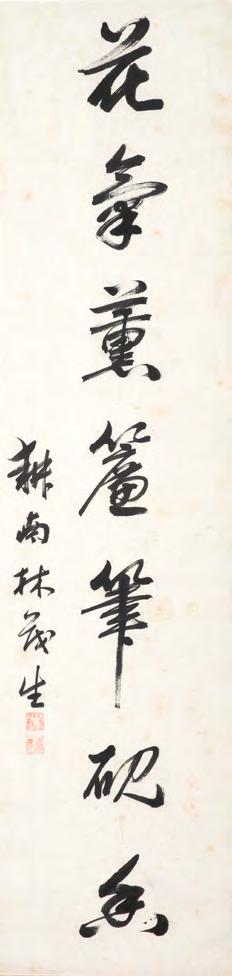 花氣薰簾筆硯香
耕南林茂生